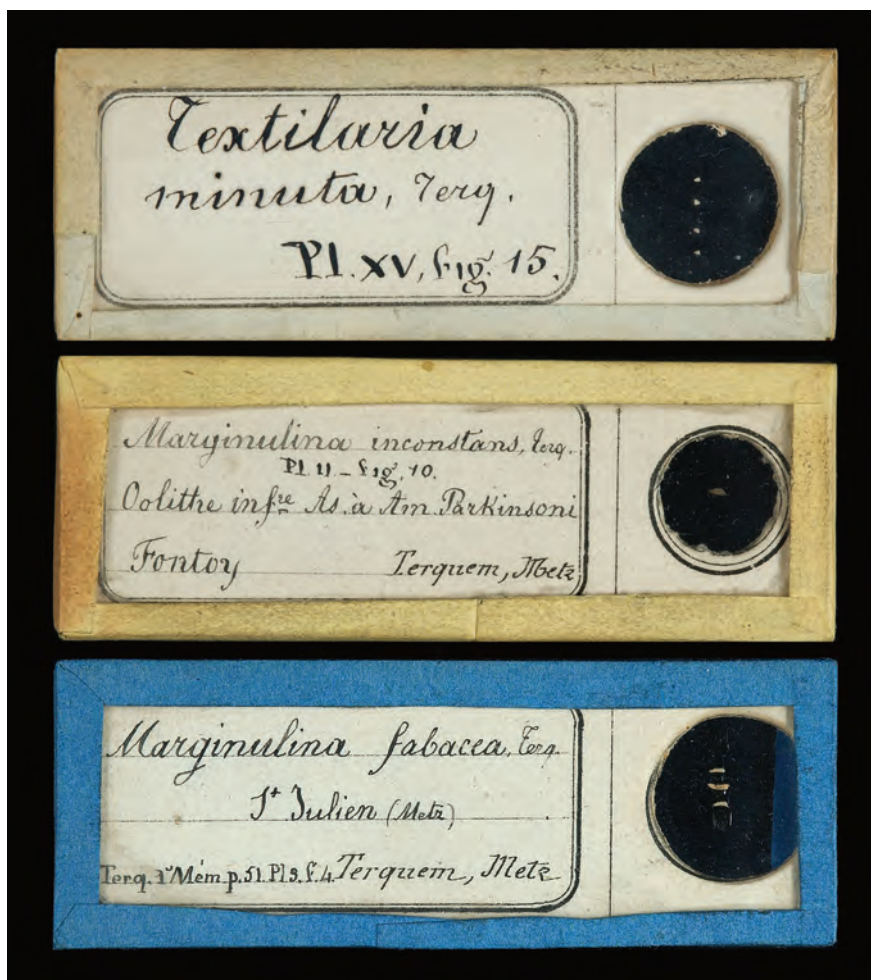 Textilaria
minuta, Terq.
Pl. XV, fig. 15.
Marginulina inconstans, Terq.
Pl. II _ fig. 10.
Oolithe infre As. à Am. Parkinsoni
Fontoy Terquem, Metz
Marginulina fabacea, Terq.
St Julien (Metz)
Terq. Mém. p. 51. Pl 3. f. 4. Terquem, Metz